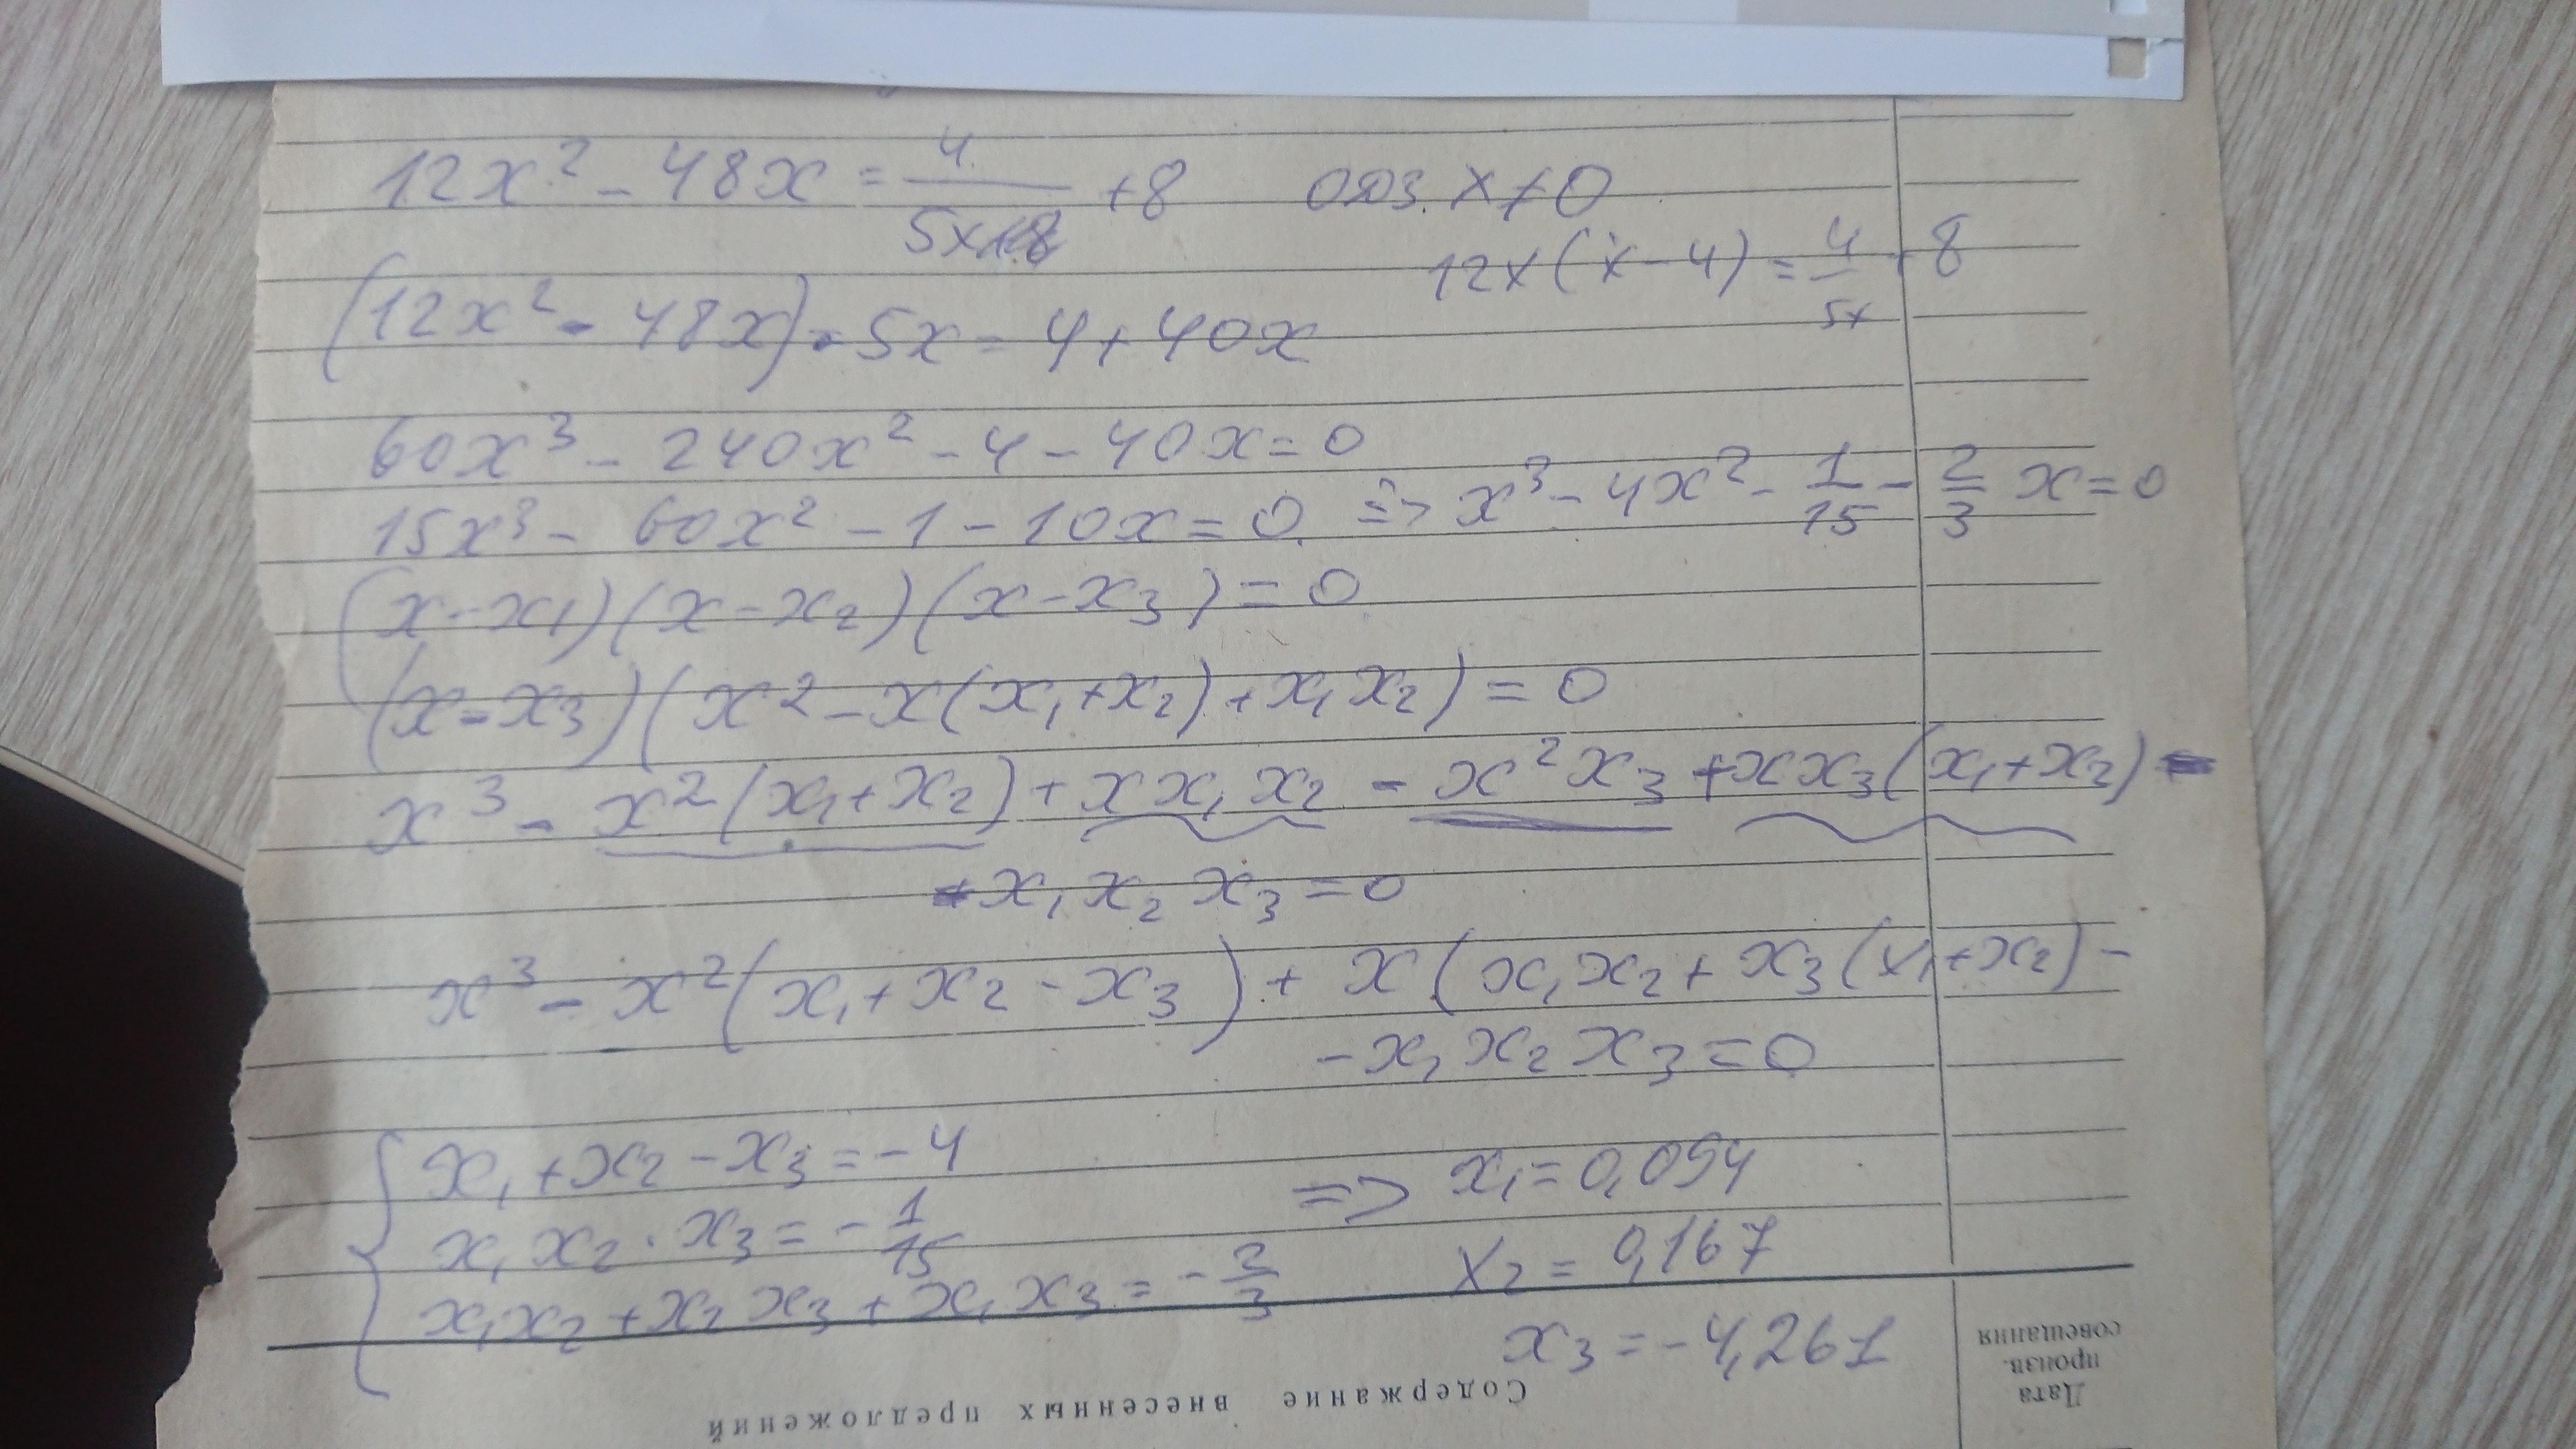 12x² - 48x = 4/5x + 8 ОДЗ. x ≠ 0
12x(x - 4) = 4/5x + 8
(12x² - 48x) · 5x = 4 + 40x
60x³ - 240x² - 4 - 40x = 0
15x³ - 60x² - 1 - 10x = 0. => x³ - 4x² - 1/15 - 2/3 x = 0
(x - x₁)(x - x₂)(x - x₃) = 0
(x - x₃)(x² - x(x₁ + x₂) + x₁x₂) = 0
x³ - x²(x₁ + x₂) + xx₁x₂ - x²x₃ + xx₃(x₁ + x₂) -
- x₁x₂x₃ = 0
x³ - x²(x₁ + x₂ - x₃) + x(x₁x₂ + x₃(x₁ + x₂) -
- x₁x₂x₃ = 0
{ x₁ + x₂ - x₃ = -4
x₁x₂ · x₃ = - 1/15
x₁x₂ + x₂x₃ + x₁x₃ = - 2/3
=> x₁ = 0,094
x₂ = 0,167
x₃ = -4,261
Дата
произв.
совещания
Содержание внесенных предложений